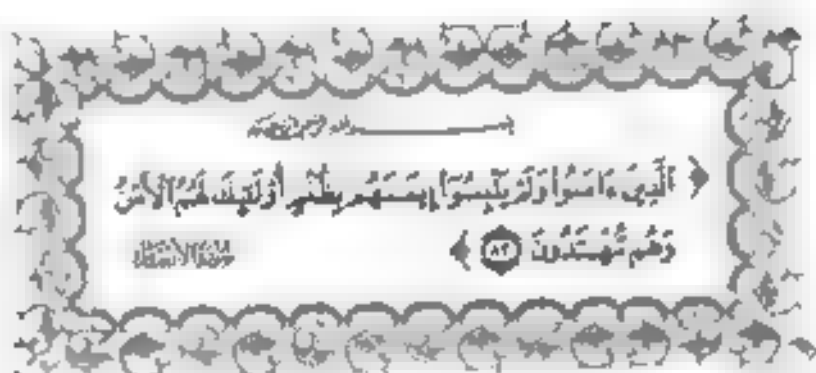 بسم الله الرحمن الرحيم
﴿ الَّذِينَ ءَامَنُوا وَلَمْ يَلْبِسُوٓا إِيمَـٰنَهُم بِظُلْمٍ أُو۟لَـٰٓئِكَ لَهُمُ الْأَمْنُ
وَهُم مُّهْتَدُونَ ٨٢ ﴾